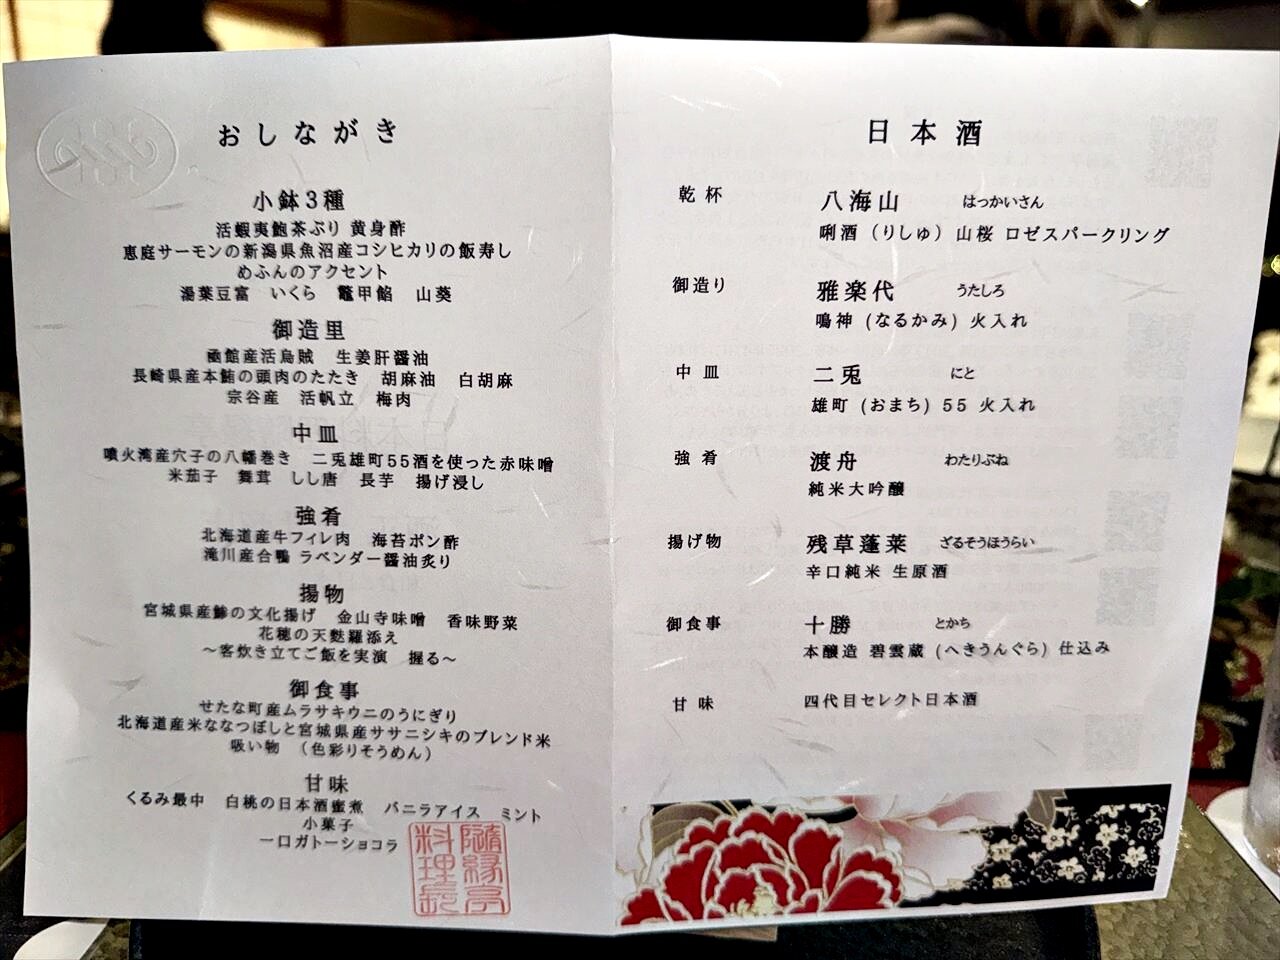 おしながき
小鉢3種
活蝦夷鮑茶ぶり 黄身酢
恵庭サーモンの新潟県魚沼産コシヒカリの飯寿し
めふんのアクセント
湯葉豆富 いくら 鼈甲餡 山葵
御造里
函館産活烏賊 生姜肝醤油
長崎県産本鮪の頭肉のたたき 胡麻油 白胡麻
宗谷産 活帆立 梅肉
中皿
噴火湾産穴子の八幡巻き 二兎雄町55酒を使った赤味噌
米茄子 舞茸 しし唐 長芋 揚げ浸し
強肴
北海道産牛フィレ肉 海苔ポン酢
滝川産合鴨 ラベンダー醤油炙り
揚物
宮城県産鯵の文化揚げ 金山寺味噌 香味野菜
花穂の天麩羅添え
～客炊き立てご飯を実演 握る～
御食事
せたな町産ムラサキウニのうにぎり
北海道産米ななつぼしと宮城県産ササニシキのブレンド米
吸い物 (色彩りそうめん)
甘味
くるみ最中 白桃の日本酒蜜煮 バニラアイス ミント
小菓子
一口ガトーショコラ
隨縁亭
料理長
日本酒
乾杯 八海山 はっかいさん
唎酒 (りしゅ) 山桜 ロゼスパークリング
御造り 雅楽代 うたしろ
鳴神 (なるかみ) 火入れ
中皿 二兎 にと
雄町 (おまち) 55 火入れ
強肴 渡舟 わたりぶね
純米大吟醸
揚げ物 残草蓬莱 ざるそうほうらい
辛口純米 生原酒
御食事 十勝 とかち
本醸造 碧雲蔵 (へきうんぐら) 仕込み
甘味 四代目セレクト日本酒